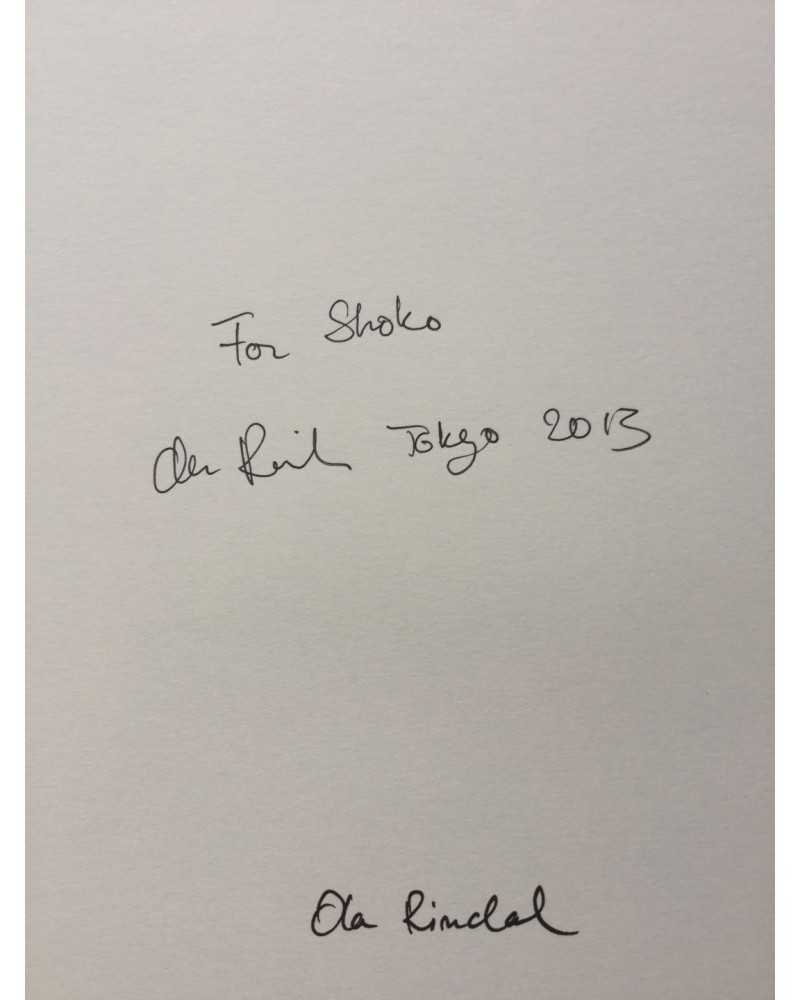 For Shoko
Ola Tokyo 2013
Ola Rindal